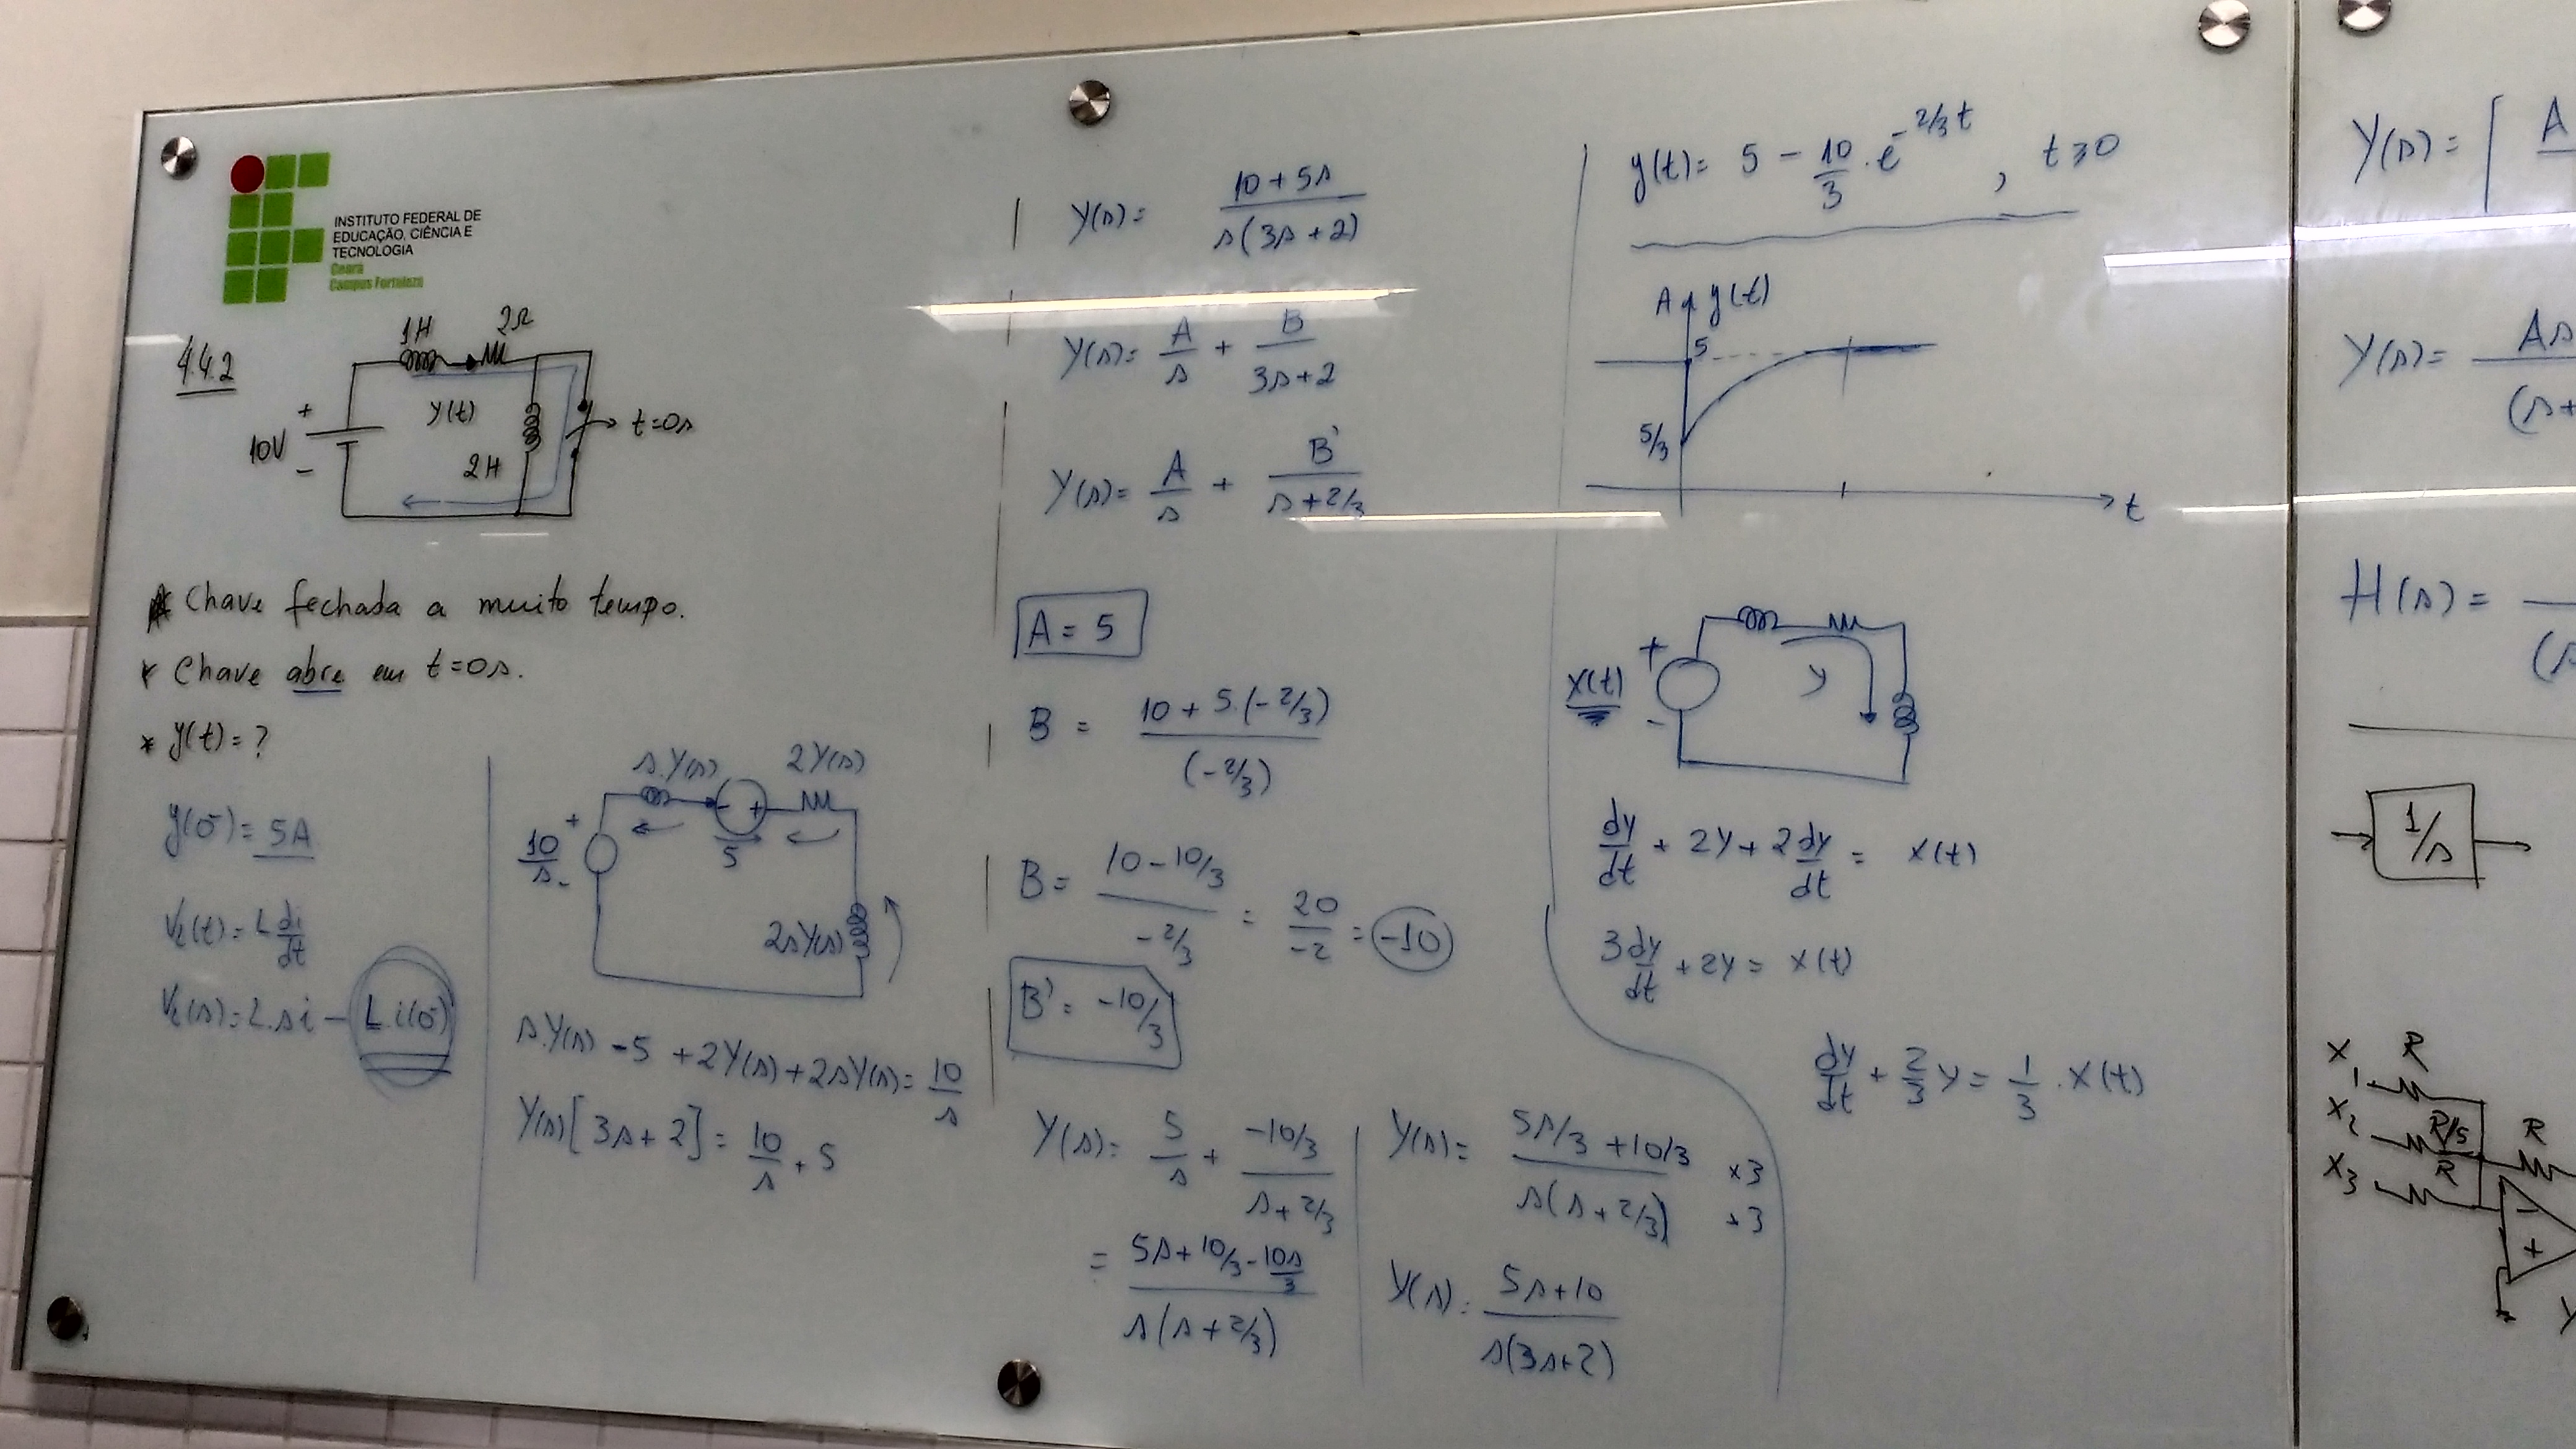 INSTITUTO FEDERAL DE
EDUCAÇÃO, CIÊNCIA E
TECNOLOGIA
Ceará
Campus Fortaleza
4.4.2
1H
2Ω
10V
+
-
y(t)
2H
t=0s
* Chave fechada a muito tempo.
* Chave abre em t=0s.
* y(t)=?
y(0⁻)= 5A
V_L(t)= L di/dt
V_L(s)= L.si - L.i(0⁻)
s.Y(s)
2Y(s)
10/s
+
-
- +
5
2sY(s)
s.Y(s) -5 +2Y(s)+2sY(s)= 10/s
Y(s)[3s+2]= 10/s + 5
Y(s)= (10+5s)/(s(3s+2))
Y(s)= A/s + B/(3s+2)
Y(s)= A/s + B'/(s+2/3)
A = 5
B = (10+5.(-2/3))/(-2/3)
B= (10-10/3)/(-2/3) = 20/-2 = -10
B'= -10/3
Y(s)= 5/s + (-10/3)/(s+2/3)
= (5s+10/3-10s/3)/(s(s+2/3))
Y(s)= (5s/3+10/3)/(s(s+2/3)) ×3 ×3
Y(s)= (5s+10)/(s(3s+2))
y(t)= 5 - 10/3 . e^(-2/3 t), t≥0
A
y(t)
5
5/3
t
x(t)
+
-
y
dy/dt + 2y + 2dy/dt = x(t)
3dy/dt + 2y = x(t)
dy/dt + 2/3 y = 1/3 . x(t)
Y(s)= [ A
Y(s)= As
(s+
H(s)=
(s
1/s
X1 R
X2 R/5 R
X3 R
-
+
Y